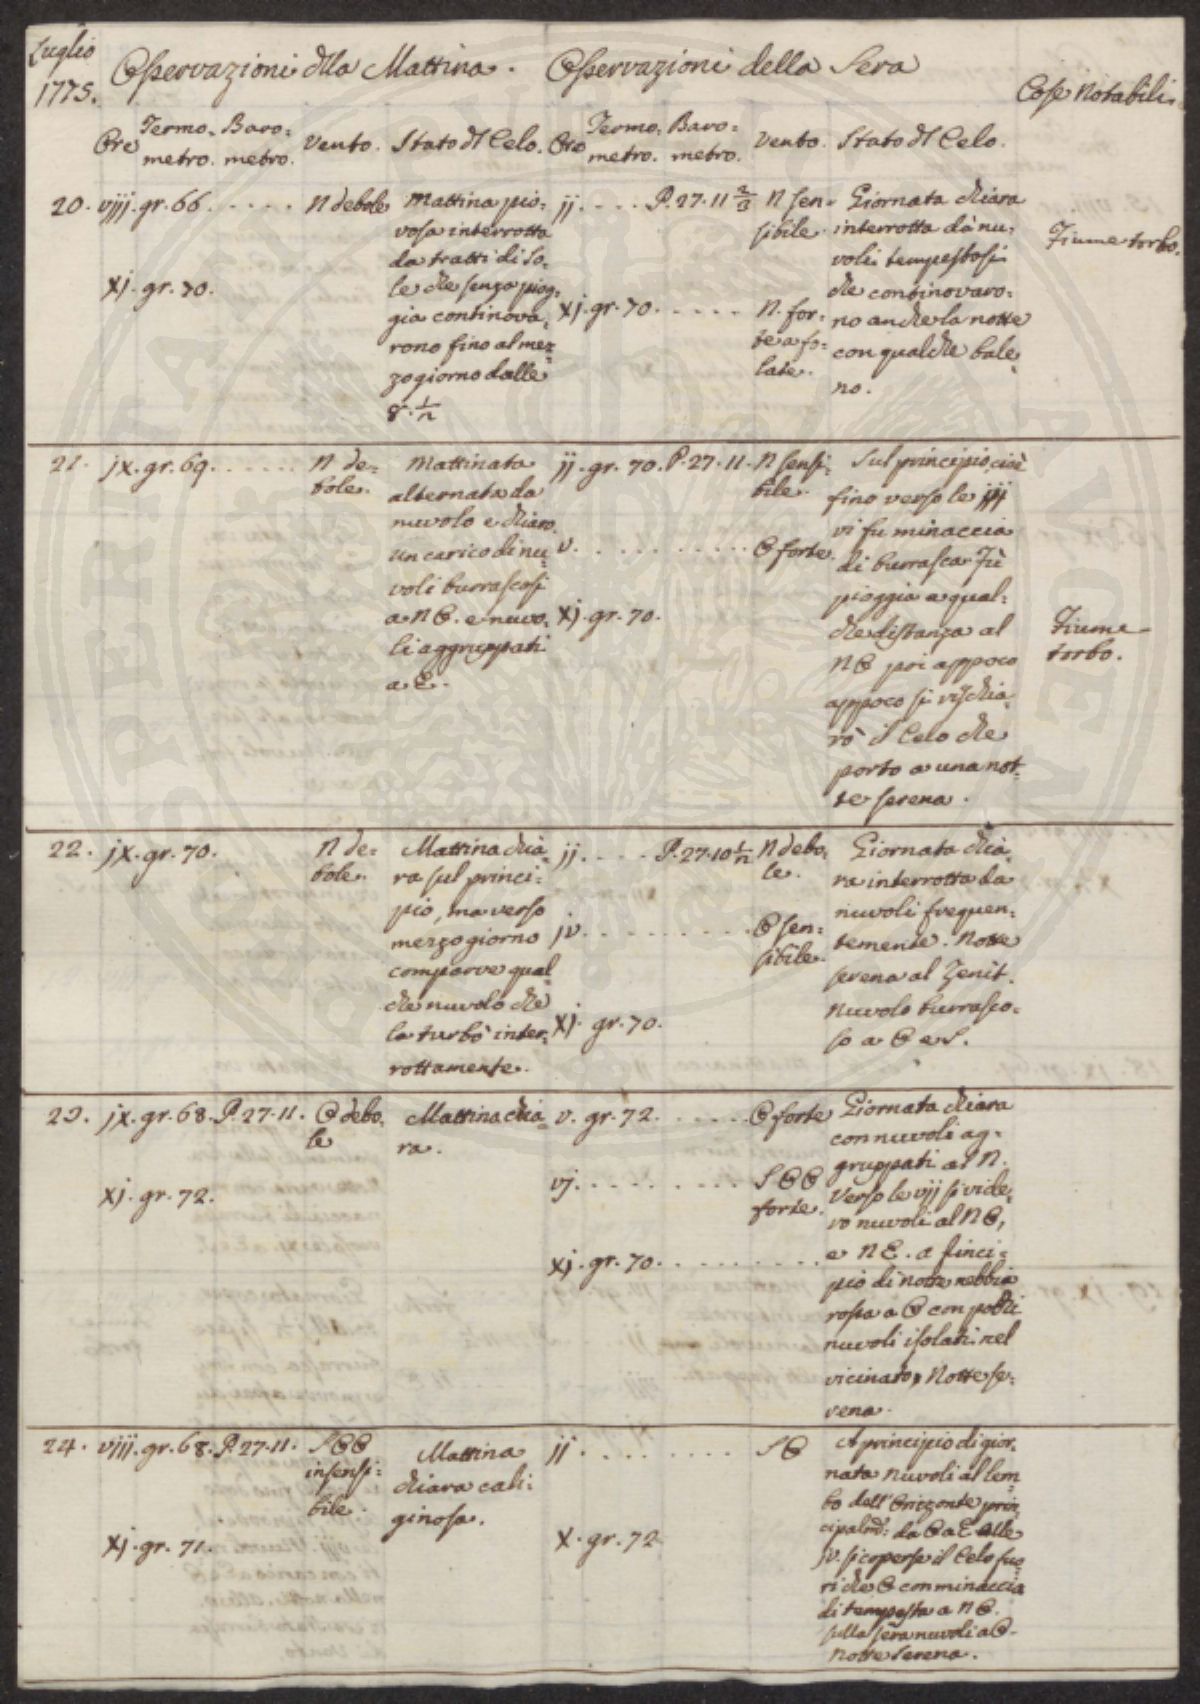 Luglio
1775.
Osservazioni dlla Mattina. Osservazioni della Sera
Cose Notabili.
Ore Termo: Baro: Vento. Stato dl Celo. Ore Termo. Baro: Vento. Stato dl Celo.
metro. metro. metro. metro.
20. viij. gr. 66. . . . . . N debole
Mattina pio:
vosa interrotta
da tratti di So:
le che senza piog:
gia continova:
rono fino al mez:
zogiorno dalle
8. 1/2
xj. gr. 70.
ij. . . . . P. 27. 11 2/3 N sen:
sibile.
xj. gr. 70. . . . . . N. for:
te a fo:
late.
Giornata chiara
interrotta da nu:
voli tempestosi
che continovaro:
no anche la notte
con qualche bale:
no.
Fiume torbo.
21. jx. gr. 69. . . . . . . N de:
bole.
Mattinata
alternata da
nuvolo e chiaro.
un carico di nu:
voli burrascosi
a N O. e nuvo:
li aggruppati
a E.
ij. gr. 70. P. 27. 11. N sensi:
bile.
v. . . . . . . . . . . O forte.
xj. gr. 70.
Sul principio cioè
fino verso le iij
vi fu minaccia
di burrasca. Fù
pioggia a qual:
che distanza al
N O poi appoco
appoco si rischia:
rò il Celo che
portò a una not:
te serena.
Fiume
torbo.
22. jx. gr. 70. N de:
bole.
Mattina chia:
ra sul princi:
pio, ma verso
mezzogiorno
comparve qual
che nuvolo che
la turbò inter:
rottamente.
ij. . . . . P. 27. 10 1/2 N debo:
le.
jv. . . . . . . . . . O sen:
sibile.
xj. gr. 70.
Giornata chia:
ra interrotta da
nuvoli frequen:
temente. Notte
serena al Zenit.
Nuvolo burrasco:
so a O e S.
23. jx. gr. 68. P. 27. 11. O debo:
le
Mattina chia:
ra.
xj. gr. 72.
v. gr. 72. . . . . . O forte
vj. . . . . . . . . . S O O
forte.
xj. gr. 70. . . . . . . . . .
Giornata chiara
con nuvoli ag:
gruppati a N.
Verso le vij si vide:
ro nuvoli al N O,
e N E. a princi:
pio di notte nebbia
rossa a O con pochi
nuvoli isolati nel
vicinato. Notte se:
rena.
24. viij. gr. 68. P. 27. 11. S O O
insensi:
bile.
Mattina
chiara cali:
ginosa.
xj. gr. 71.
ij. . . . . . . . . S O
x. gr. 72
A principio di gior:
nata nuvoli al lem:
bo dell'Orizzonte prin:
cipalmte: da O a E alle
jv. si coperse il Celo fuo:
ri che O con minaccia
di tempesta a N O.
sulla sera nuvoli a O.
Notte Serena.